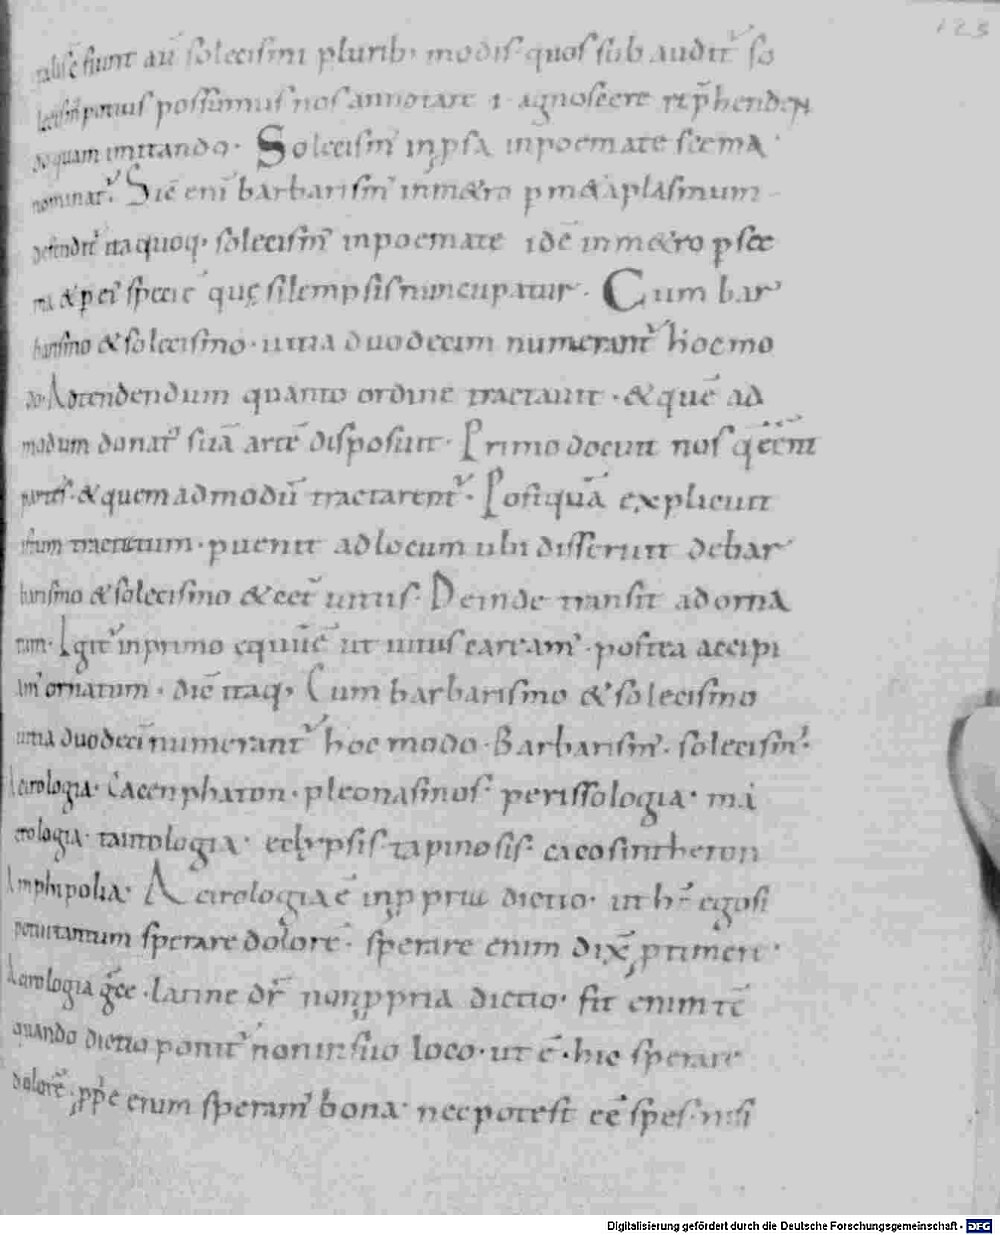 123
fiunt aū soleciſmi plurib; modiſ quoſ ſub audit᷑ ſo
poſſumuſ noſ annotare & agnoſcere rep̄henden
do quam imitando. Soleciſm' in ꝓſa in poemate ſcema
nominat᷑. Sic̄ enī barbariſm' in metro p metaplaſmum
defendit᷑ ita quoq; ſoleciſm' in poemate idē in metro p ſce
ma & p ei' ſpecie quę ſilempſiſ nuncupatur. Cum bar
bariſmo & ſoleciſmo uitia duodecim numerant᷑ hoc mo
do. Adtendendum quanto ordine tractauit & quē ad
modum donat' ſuā artē diſpoſuit. Primo docuit noſ
& quem ad modū tractarent᷑. Poſtquā explicuit
tractatum puenit ad locum ubi diſſeruit de bar
bariſmo & ſoleciſmo & cet̄ uitiiſ. Deinde tranſit ad orna
tum. Igit᷑ in primo ut uitiiſ careamˀ poſtea accipi
amˀ ornatum. dic̄ itaq; Cum barbariſmo & ſoleciſmo
uitia duodecī numerant᷑ hoc modo. Barbariſm'. ſoleciſm'.
Acirologia. Cacenphaton. pleonaſmoſ. periſſologia. ma
crologia. tautologia. eclypſiſ. tapinoſiſ. cacoſintheton
Amphipolia. Acirologia ē inꝓpria dictio. ut
potui tantum ſperare dolorē. ſperare enim dix̄ ꝓ timere.
Acirologia grece. latine dr̄ non ꝓpria dictio. fit enim
quando dictio ponit᷑ non in ſuo loco. ut ē hic ſperare
dolorē. ꝓprie enim ſperamˀ bona nec poteſt eē ſpeſ niſi
Digitalisierung gefördert durch die Deutsche Forschungsgemeinschaft - DFG